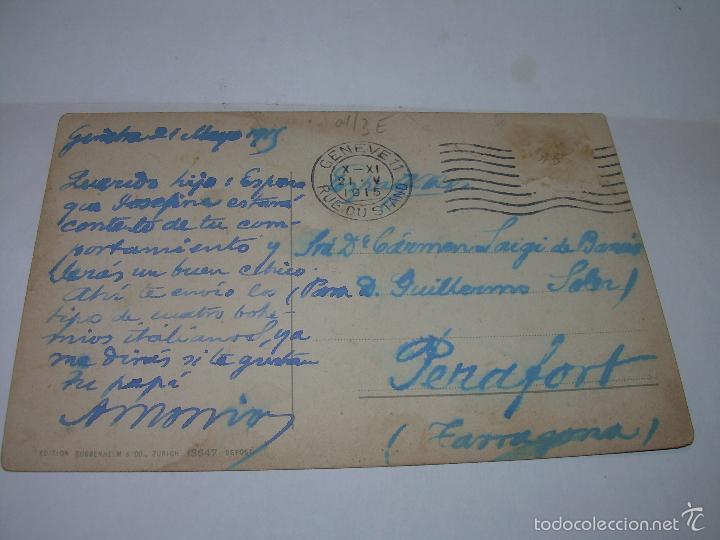 0113E
Ginebra 21 Mayo 1915
Querido hijo: Espero
que Josefina estará
contenta de tu com-
portamiento y
seras un buen chico.
Ahi te envio los
tipos de cuatro bohe-
mios italianos, ya
me diras si te gustan
tu papá
Antonio
GENEVE 11
X-XI
21.V
1915
RUE DU STAND
Sra Dª Cármen Saigi de
(Para D. Guillermo Soler)
Perafort
(Tarragona)
EDITION GUGGENHEIM & CO., ZURICH 13647 DEPOSE
todocoleccion.net